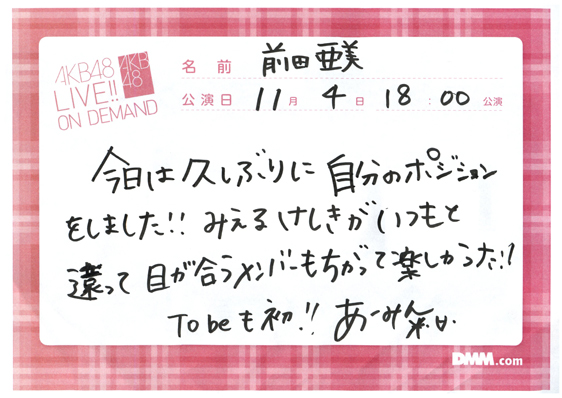 AKB48
LIVE!!
ON DEMAND
AKB
48
名前 前田亜美
公演日 11月4日 18:00公演
今日は久しぶりに自分のポジション
をしました!! みえるけしきがいつもと
違って目が合うメンバーもちがって楽しかった!!
To beも初!! あーみん
DMM.com